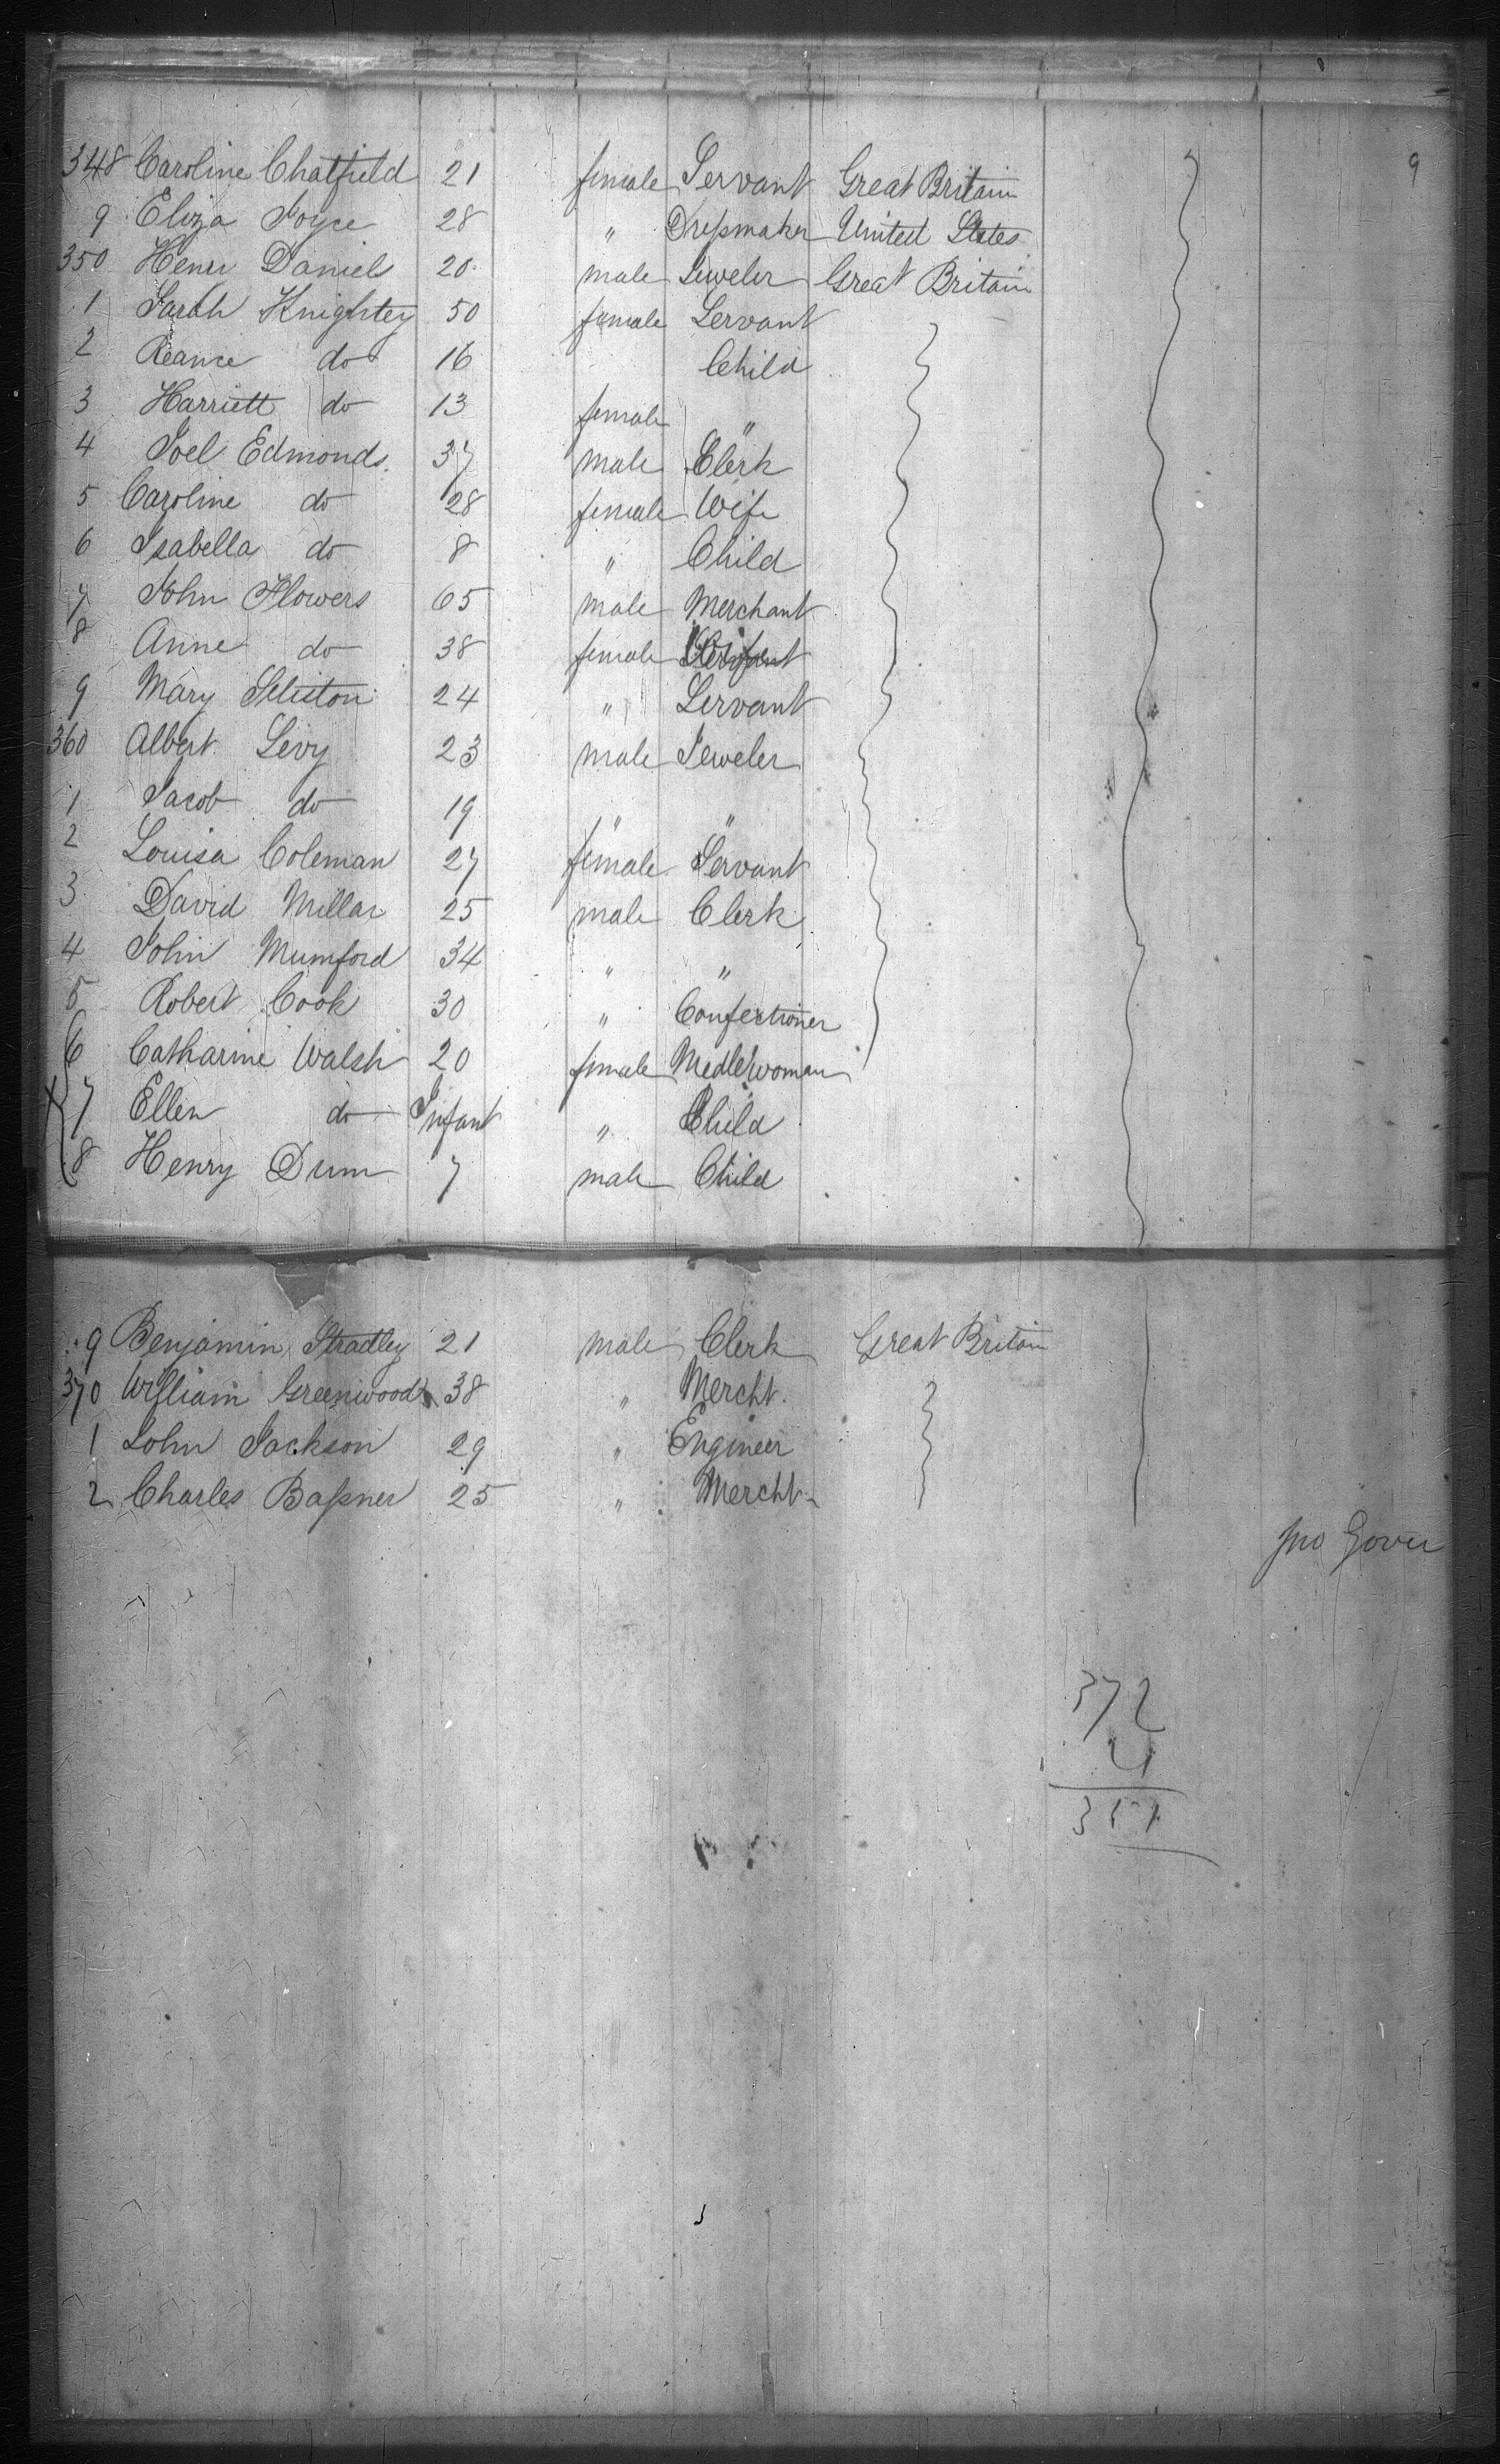 9
348 Caroline Chatfield 21 female Servant Great Britain
9 Eliza Joyce 28 " Dressmaker United States
350 Henri Daniels 20 male Jeweler Great Britain
1 Sarah Knightey 50 female Servant
2 do 16 Child
3 Harriett do 13 female "
4 Joel Edmonds 37 male Clerk
5 Caroline do 28 female Wife
6 Isabella do 8 " Child
7 John Flowers 65 male Merchant
8 Anne do 38 female
9 Mary 24 " Servant
360 Albert Levy 23 male Jeweler
1 Jacob do 19 " "
2 Louisa Coleman 27 female Servant
3 David Millar 25 male Clerk
4 John Mumford 34 " "
5 Robert Cook 30 " Confectioner
6 Catharine Walsh 20 female Nedlewoman
7 Ellen do Infant " Child
8 Henry Dunn 7 male Child
9 Benjamin Stradley 21 male Clerk Great Britain
370 William Greenwood 38 " Mercht.
1 John Jackson 29 " Engineer
2 Charles Bassner 25 " Mercht.
Jno Gover
372
21
351